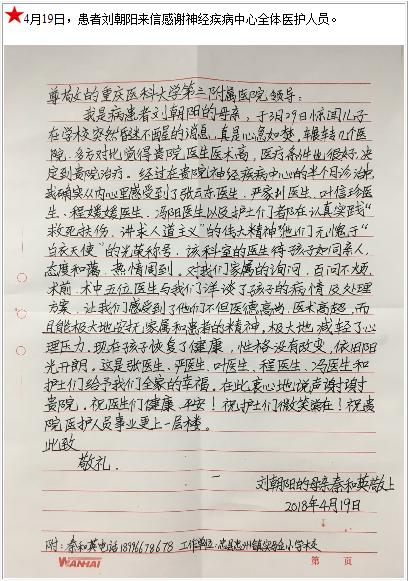 4月19日，患者刘朝阳来信感谢神经疾病中心全体医护人员。
尊敬的重庆医科大学第三附属医院领导：
我是病患者刘朝阳的母亲，于3月29日惊闻儿子
在学校突然昏迷不醒的消息，真是心急如焚，辗转几个医
院，多方对比觉得贵院医生医术高，医疗条件也很好，决
定到贵院治疗。经过在贵院神经疾病中心的半个月治疗，
我确实从内心里感受到了张云东医生、严家川医生、叶信珍医
生、程媛媛医生、冯阳医生以及护士们都在认真实践“
救死扶伤，讲求人道主义”的伟大精神，他们无愧于“
白衣天使”的光荣称号，该科室的医生待孩子如同亲人，
态度和蔼，热情周到。对我们家属的询问，百问不烦，
术前、术中五位医生与我们详谈了孩子的病情及处理
方案，让我们感受到了他们不但医德高尚，医术高超，而
且能极大地安抚家属和患者的精神，极大地减轻了心
理压力。现在孩子恢复了健康，性格没有改变，依旧阳
光开朗。这是张医生、严医生、叶医生、程医生、冯医生和
护士们给予我们全家的幸福。在此衷心地说声谢谢
贵院。祝医生们健康、平安！祝护士们微笑常在！祝贵
院医护人员事业更上一层楼。
此致
敬礼。
刘朝阳的母亲秦和英敬上
2018年4月19日
附：秦和英电话18996678678 工作单位：忠县忠州镇实验小学校
WANHAI
第 页